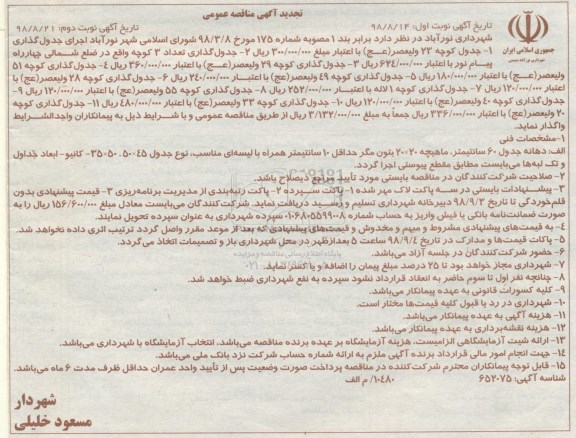 تجدید آگهی مناقصه عمومی
تاریخ آگهی نوبت اول: ۹۸/۸/۱۴
تاریخ آگهی نوبت دوم: ۹۸/۸/۲۱
جمهوری اسلامی ایران
شهرداری نورآباد در نظر دارد برابر بند ۱ مصوبه شماره ۱۷۵ مورخ ۹۸/۳/۸ شورای اسلامی شهر نورآباد اجرای جدول گذاری
۱- جدول کوچه ۲۳ ولیعصر(عج) با اعتبار مبلغ ۳۰۰/۰۰۰/۰۰۰ ریال ۲- جدول گذاری تعداد ۳ کوچه واقع در ضلع شمالی چهارراه
پیام نور با اعتبار ۶۲۴/۰۰۰/۰۰۰ ریال ۳- جدول گذاری کوچه ۲۹ ولیعصر(عج) با اعتبار ۳۶۰/۰۰۰/۰۰۰ ریال ۴- جدول گذاری کوچه ۵۱
ولیعصر(عج) با اعتبار ۱۸۰/۰۰۰/۰۰۰ ریال ۵- جدول گذاری کوچه ۴۹ ولیعصر(عج) با اعتبـار ۲۴۰/۰۰۰/۰۰۰ ریال ۶- جدول گذاری کوچه ۲۸ ولیعصر(عج) با
اعتبار ۱۲۰/۰۰۰/۰۰۰ ریال ۷- جدول گذاری کوچه ۱ لاله با اعتبـار ۲۵۲/۰۰۰/۰۰۰ ریال ۸- جدول گذاری کوچه ۵۵ ولیعصر(عج) با اعتبار ۱۲۰/۰۰۰/۰۰۰ ریال ۹-
جدول گذاری کوچه ۴۰ ولیعصر(عج) با اعتبار ۱۲۰/۰۰۰/۰۰۰ ریال ۱۰- جدول گذاری کوچه ۳۳ ولیعصر(عج) با اعتبار ۴۸۰/۰۰۰/۰۰۰ ریال ۱۱- جدول گذاری کوچه
۲۰ ولیعصر(عج) با اعتبار ۳۳۶/۰۰۰/۰۰۰ ریال جمعاً به مبلغ ۳/۱۳۲/۰۰۰/۰۰۰ ریال از طریق مناقصه عمومی و با شرایط ذیل به پیمانکاران واجدالشرایط
واگذار نماید.
۱- مشخصات فنی
الف: دهانه جدول ۶۰ سانتیمتر، ماهیچه ۲۰×۲۰ بتون مگر حداقل ۱۰ سانتیمتر همراه با لیسه‌ای مناسب، نوع جدول ۴۵×۵۰.۵۰×۳۵- کانیو- ابعاد جداول
و تک لبه‌ها می‌بایست مطابق مقطع پیوستی اجرا گردد.
۲- صلاحیت شرکت کنندگان در مناقصه بایستی مورد تأیید مراجع ذیصلاح باشد.
۳- پیشنهادات بایستی در سـه پاکت لاک مهر شده ۱- پاکت سـپرده ۲- پاکت رتبه‌بندی از مدیریت برنامه‌ریزی ۳- قیمت پیشنهادی بدون
قلم‌خوردگی تا تاریخ ۹۸/۹/۳ دبیرخانه شهرداری تسلیم و رسید دریافت نماید. شرکت کنندگان می‌بایست معادل مبلغ ۱۵۶/۶۰۰/۰۰۰ ریال به
صورت ضمانتنامه بانکی یا فیش واریز به حساب شماره ۰۱۰۶۸۰۵۵۹۹۰۰۸ سپرده شهرداری به عنوان سپرده تحویل نمایند.
۴- به قیمت‌های پیشنهادی مشروط و مبهم و مخدوش و قیمت‌های پیشنهادی که بعد از موعد مقرر واصل گردد ترتیب اثری داده نخواهد شد.
۵- پاکات قیمت‌ها و مدارک در تاریخ ۹۸/۹/۴ ساعت ۵ بعدازظهر در محل شهرداری باز و تصمیمات اتخاذ می‌گردد.
۶- حضور شرکت کنندگان در جلسه آزاد می‌باشد.
۷- شهرداری مجاز خواهد بود تا ۲۵ درصد مبلغ پیمان را اضافه و یا کسر نماید.
۸- چنانچه نفر اول تا سوم حاضر به انعقاد قرارداد نشود سپرده به نفع شهرداری ضبط خواهد شد.
۹- کلیه کسورات قانونی به عهده پیمانکار می‌باشد.
۱۰- شهرداری در رد یا قبول کلیه قیمت‌ها مختار است.
۱۱- هزینه آگهی به عهده پیمانکار می‌باشد.
۱۲- هزینه نقشه‌برداری به عهده پیمانکار می‌باشد.
۱۳- ارائه شیت آزمایشگاهی الزامیست، هزینه آزمایشگاه بر عهده برنده مناقصه می‌باشد، انتخاب آزمایشگاه با شهرداری می‌باشد.
۱۴- جهت انجام امور مالی قرارداد برنده آگهی ملزم به ارائه شماره حساب شرکت نزد بانک ملی می‌باشد.
۱۵- قابل توجه پیمانکاران محترم شرکت‌کننده در مناقصه پرداخت صورت وضعیت پس از تأیید واحد عمران حداقل ظرف مدت ۶ ماه می‌باشد.
شناسه آگهی: ۶۵۲۰۷۵
۱۰۴۸۰/ م الف
شهردار
مسعود خلیلی